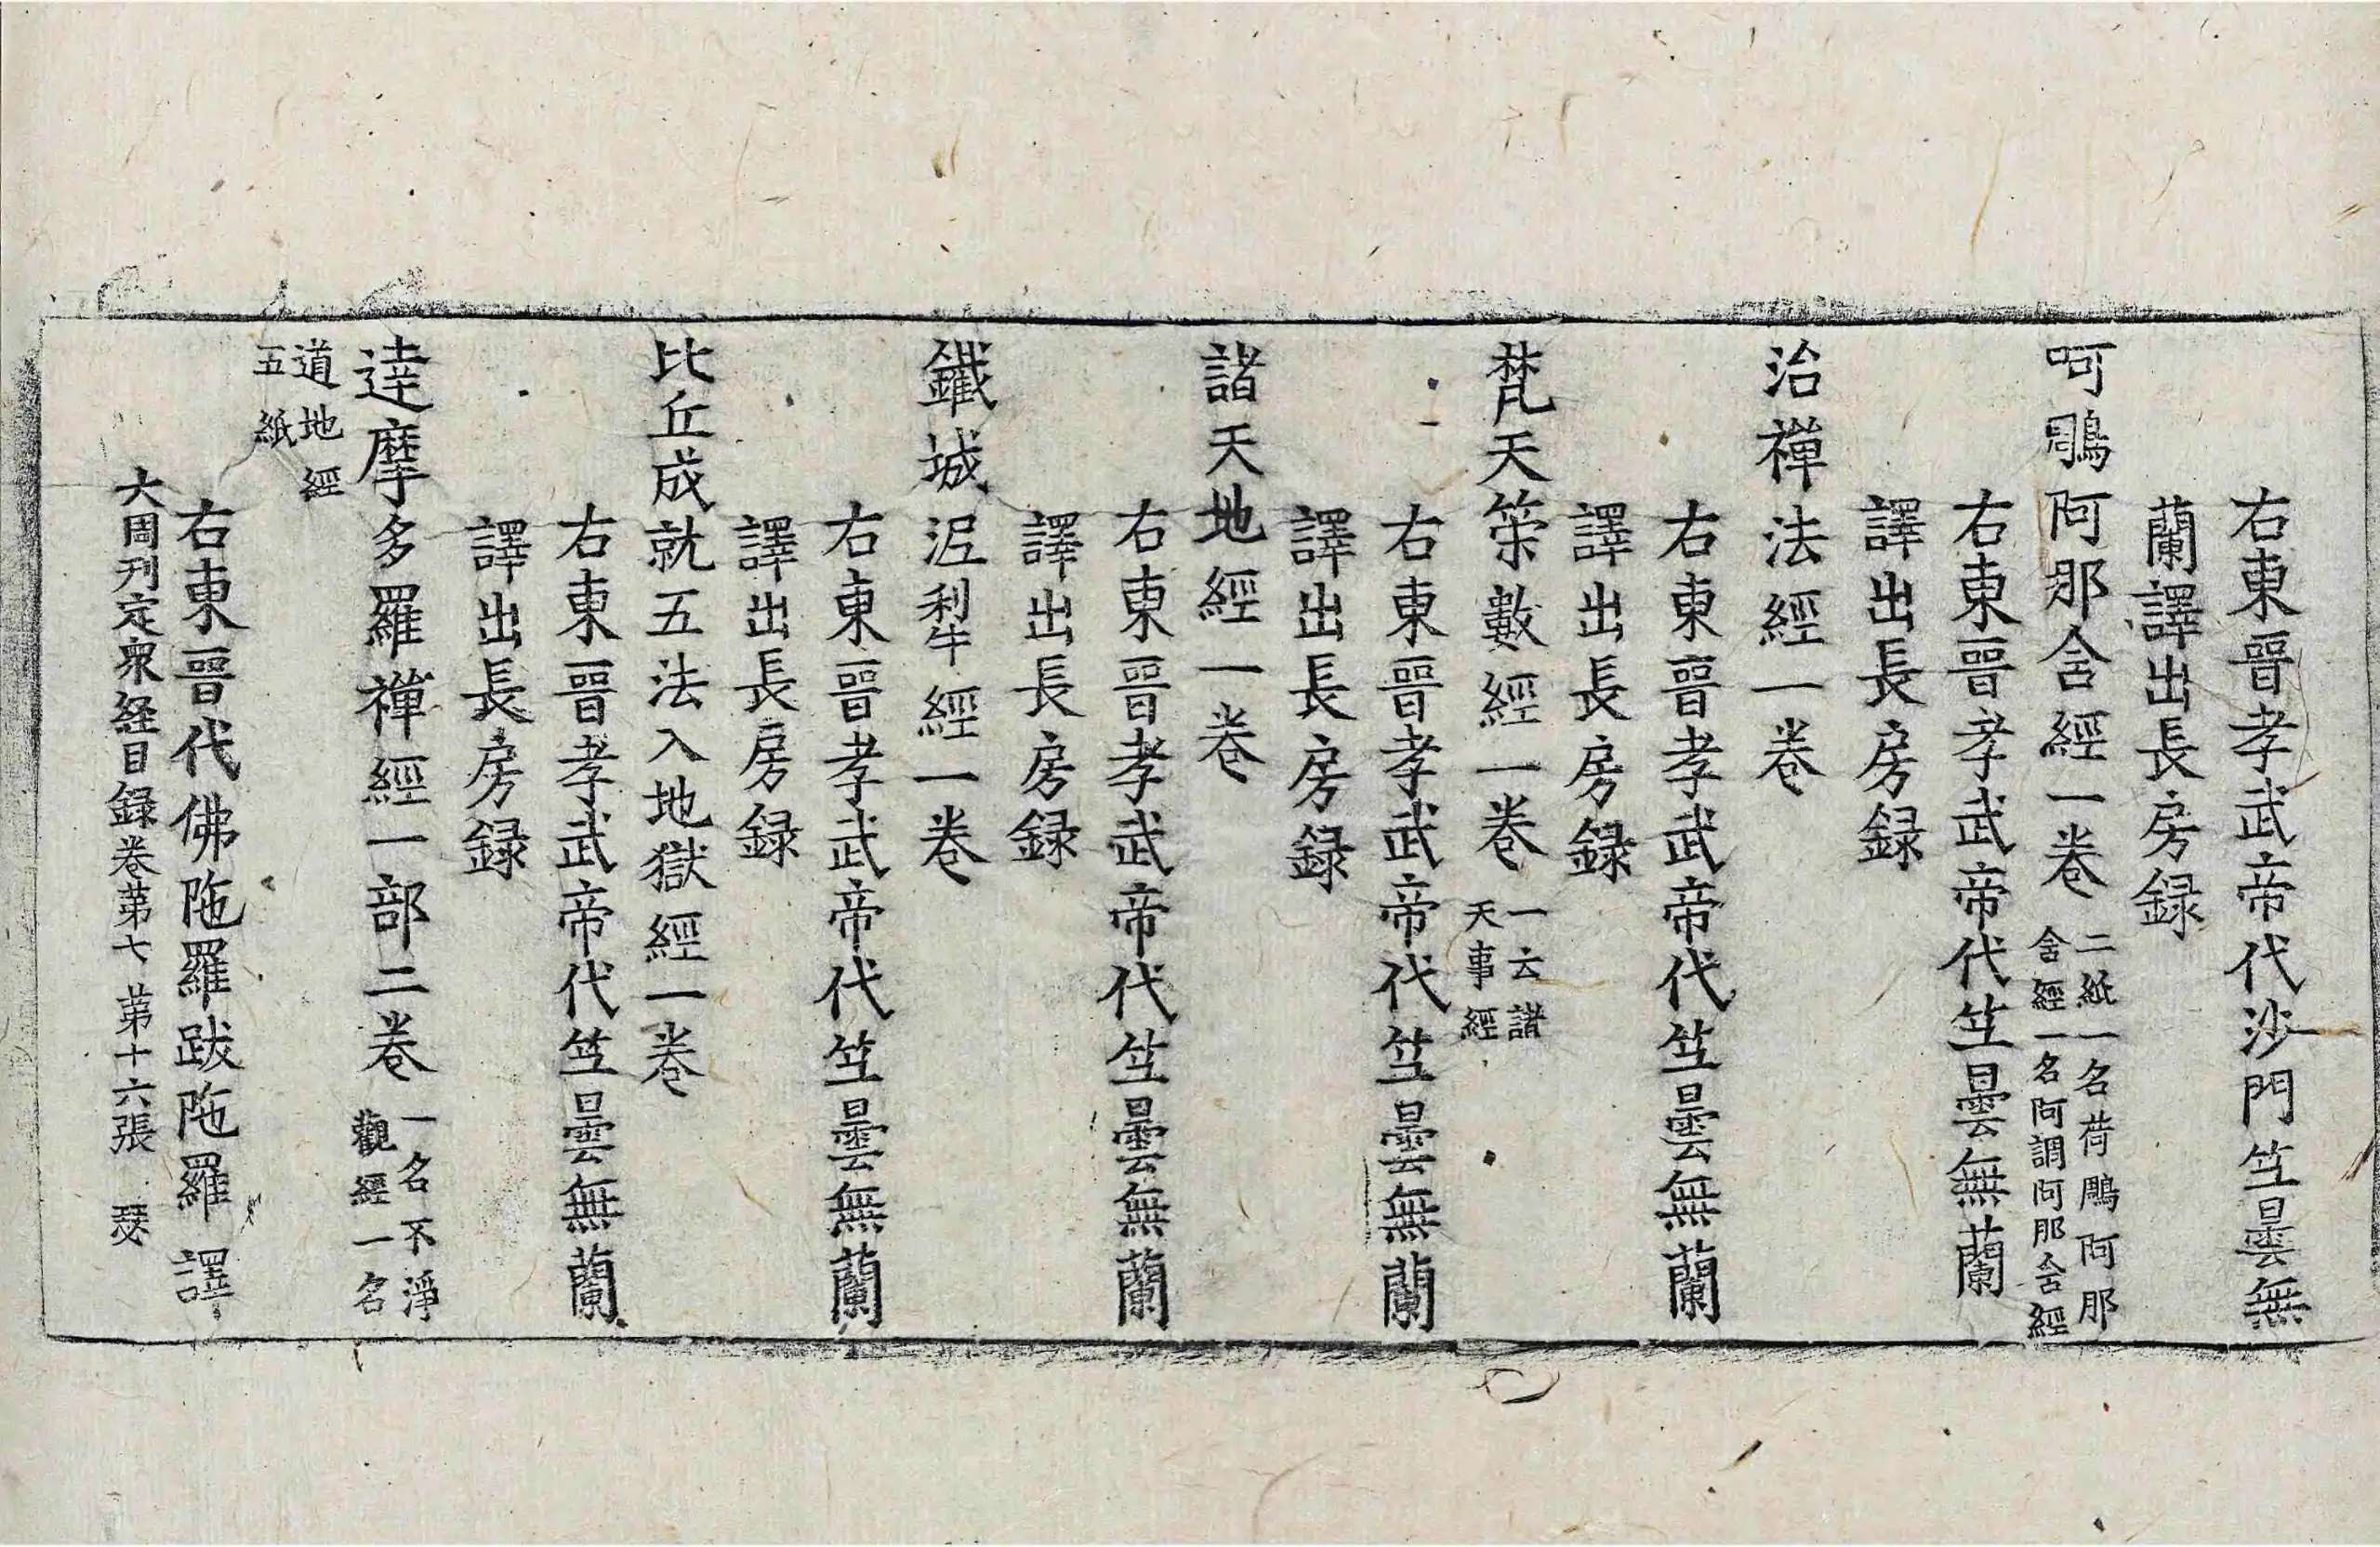 右東晉孝武帝代沙門竺曇無
蘭譯出長房録
呵鵰阿那含經一卷
二紙一名荷鵰阿那
含經一名阿調阿那含經
右東晉孝武帝代竺曇無蘭
譯出長房録
治禪法經一卷
右東晉孝武帝代竺曇無蘭
譯出長房録
梵天䇿數經一卷
一云諸
天事經
右東晉孝武帝代竺曇無蘭
譯出長房録
諸天地經一卷
右東晉孝武帝代竺曇無蘭
譯出長房録
鐵城泥利經一卷
右東晉孝武帝代竺曇無蘭
譯出長房録
比丘成就五法入地獄經一卷
右東晉孝武帝代竺曇無蘭
譯出長房録
達摩多羅禪經一部二卷
一名不淨
觀經一名
道地經
五紙
右東晉代佛陁羅跋陁羅譯
大周刊定衆経目録卷苐七 苐十六張 瑟